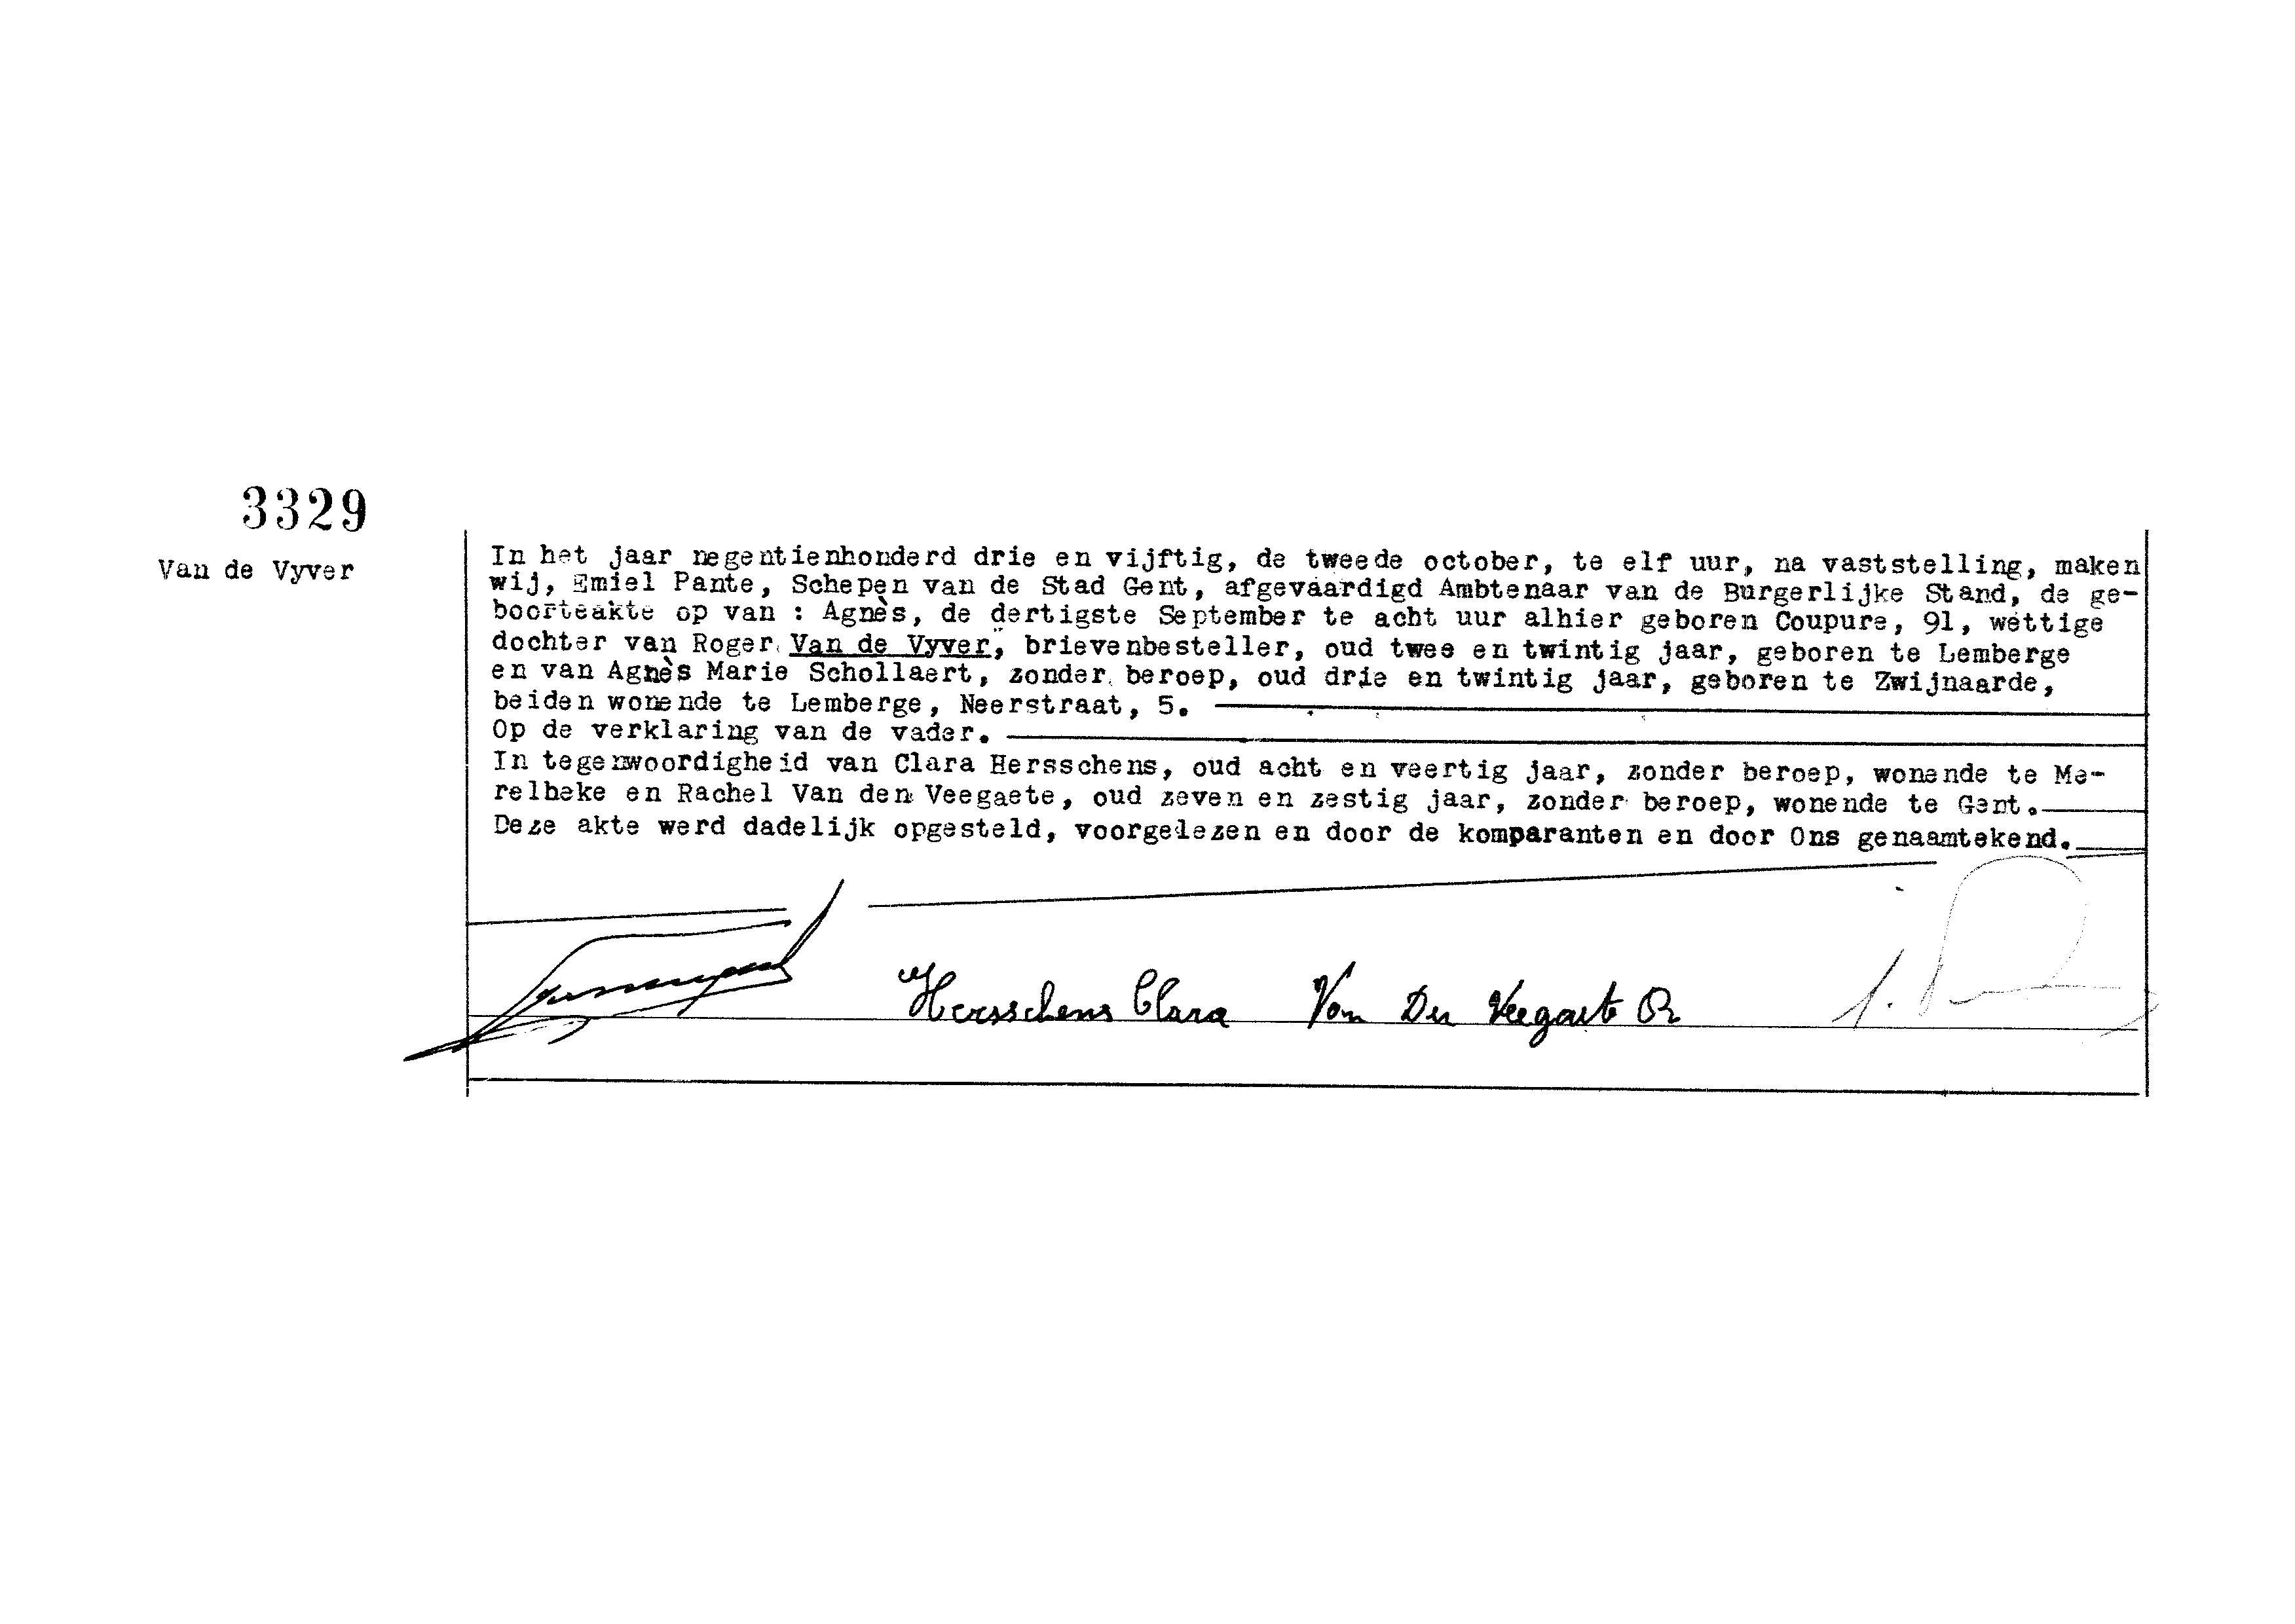 3329
Van de Vyver
In het jaar negentienhonderd drie en vijftig, de tweede october, te elf uur, na vaststelling, maken
wij, Emiel Pante, Schepen van de Stad Gent, afgevaardigd Ambtenaar van de Burgerlijke Stand, de ge-
boorteakte op van : Agnès, de dertigste September te acht uur alhier geboren Coupure, 91, wettige
dochter van Roger Van de Vyver, brievenbesteller, oud twee en twintig jaar, geboren te Lemberge
en van Agnès Marie Schollaert, zonder beroep, oud drie en twintig jaar, geboren te Zwijnaarde,
beiden wonende te Lemberge, Neerstraat, 5.
Op de verklaring van de vader.
In tegenwoordigheid van Clara Hersschens, oud acht en veertig jaar, zonder beroep, wonende te Me-
relbeke en Rachel Van den Veegaete, oud zeven en zestig jaar, zonder beroep, wonende te Gent.
Deze akte werd dadelijk opgesteld, voorgelezen en door de komparanten en door Ons genaamtekend.
Hersschens Clara Van Den Veegaete